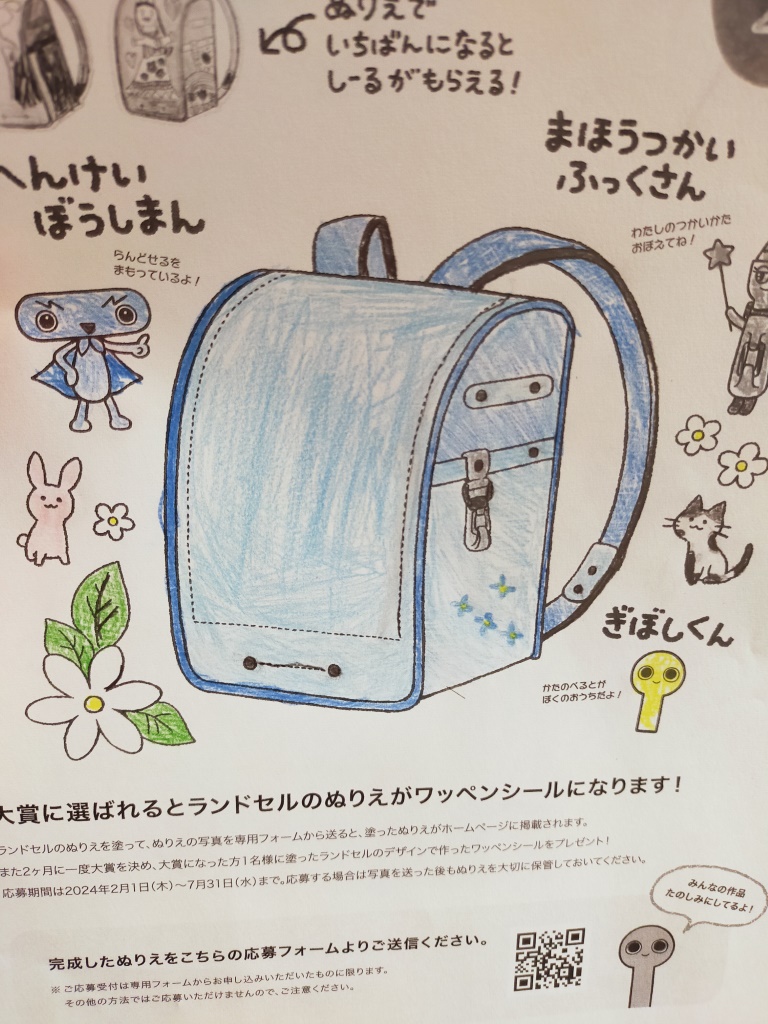 ぬりえで
いちばんになると
しーるがもらえる!
まほうつかい
ふっくさん
わたしのつかいかた
おぼえてね!
へんけい
ぼうしまん
らんどせるを
まもっているよ!
ぎぼしくん
かたのべるとが
ぼくのおうちだよ!
大賞に選ばれるとランドセルのぬりえがワッペンシールになります!
ランドセルのぬりえを塗って、ぬりえの写真を専用フォームから送ると、塗ったぬりえがホームページに掲載されます。
また2ヶ月に一度大賞を決め、大賞になった方1名様に塗ったランドセルのデザインで作ったワッペンシールをプレゼント!
応募期間は2024年2月1日(木)〜7月31日(水)まで。応募する場合は写真を送った後もぬりえを大切に保管しておいてください。
みんなの作品
たのしみにしてるよ!
完成したぬりえをこちらの応募フォームよりご送信ください。
※ご応募受付は専用フォームからお申し込みいただいたものに限ります。
その他の方法ではご応募いただけませんので、ご注意ください。